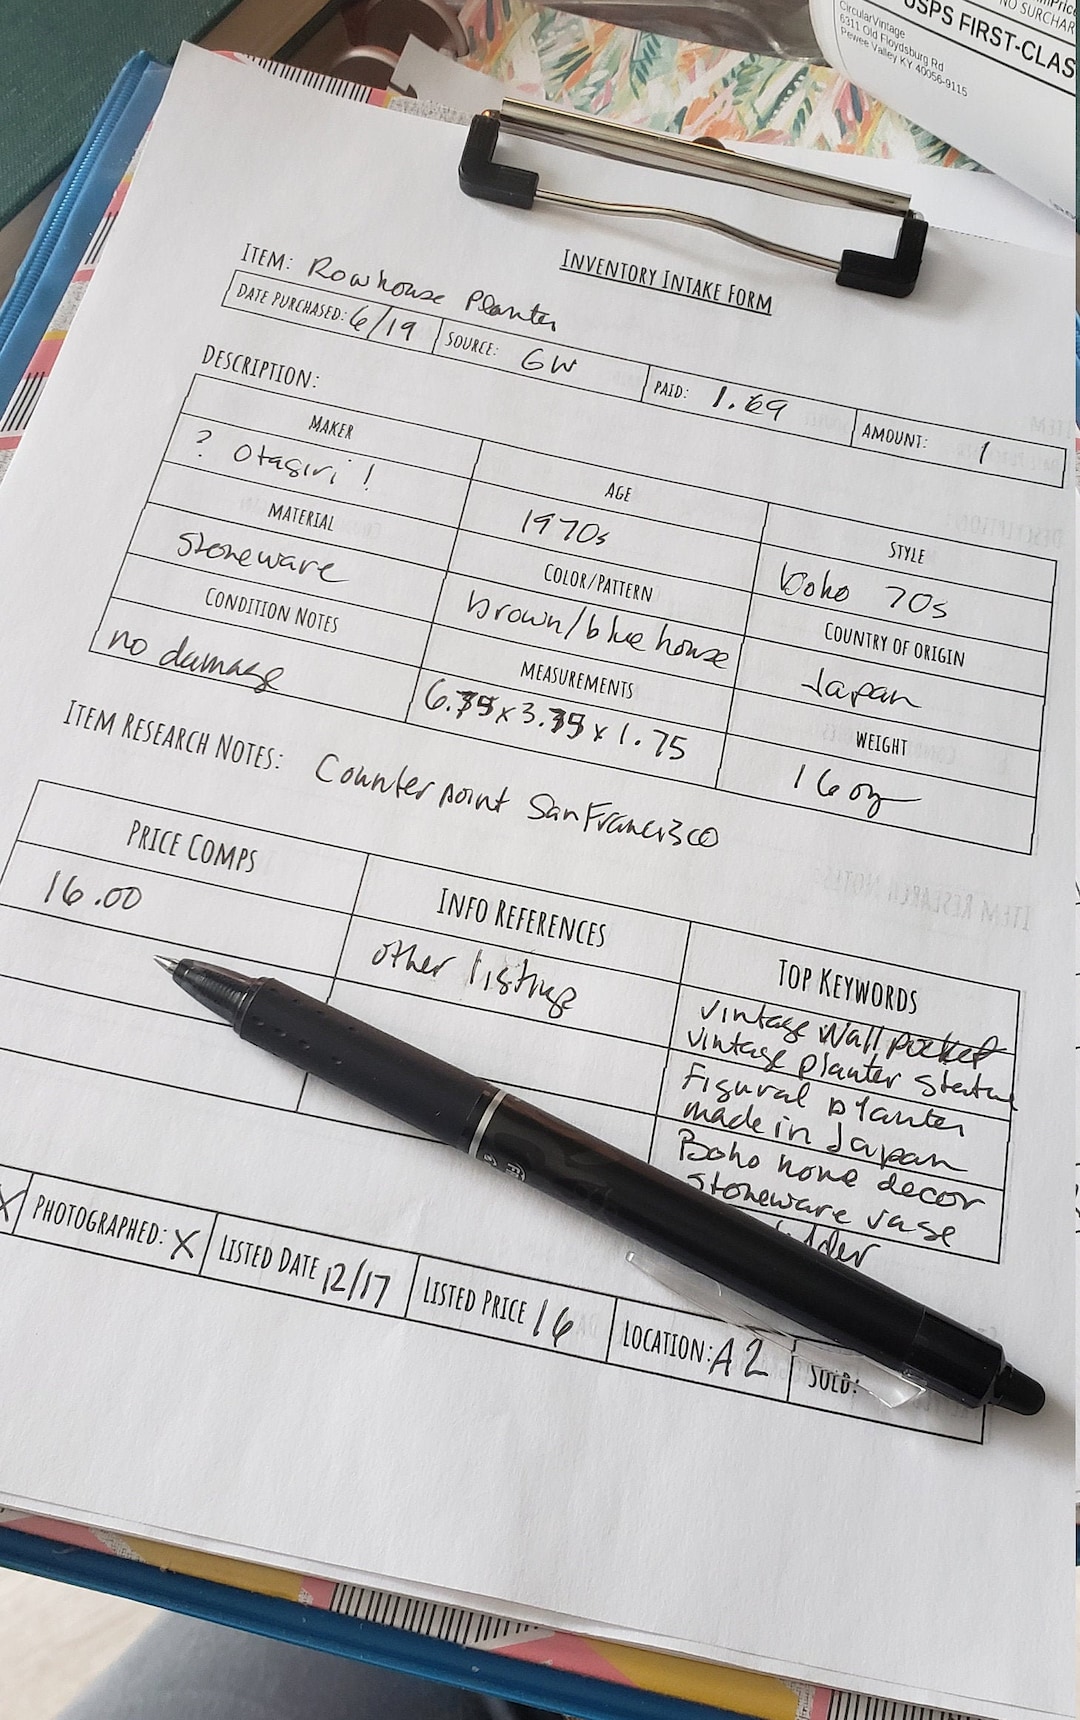 USPS FIRST-CLAS
NO SURCHAR
CircularVintage
6311 Old Floydsburg Rd
Pewee Valley KY 40056-9115
INVENTORY INTAKE FORM
ITEM: Rowhouse Planter
DATE PURCHASED: 6/19 SOURCE: GW PAID: 1.69 AMOUNT: 1
DESCRIPTION:
MAKER AGE STYLE
? Otagiri! 1970s boho 70s
MATERIAL COLOR/PATTERN COUNTRY OF ORIGIN
Stoneware brown/blue house Japan
CONDITION NOTES MEASUREMENTS WEIGHT
no damage x 1.75 16 oz
ITEM RESEARCH NOTES: Counterpoint San Francisco
PRICE COMPS INFO REFERENCES TOP KEYWORDS
16.00 other listings vintage wall pocket
vintage planter statue
Figural planter
made in Japan
Boho home decor
Stoneware vase
X PHOTOGRAPHED: X LISTED DATE 12/17 LISTED PRICE 16 LOCATION: A2 SOLD: